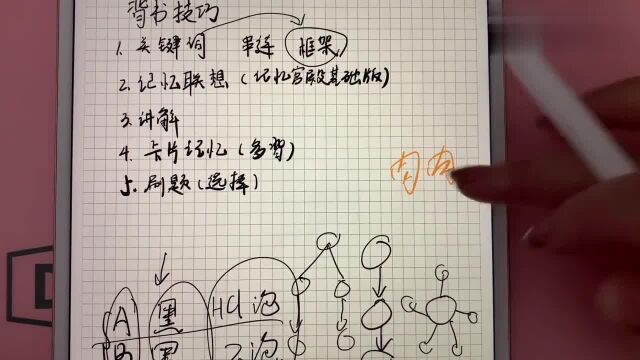 背书技巧
1. 关键词 串连 框架
2. 记忆联想 (记忆宫殿基础版)
3. 讲解
4. 卡片记忆 (多背)
5. 刷题 (选择)
A 黑 HCl 泡
B 黑 泡